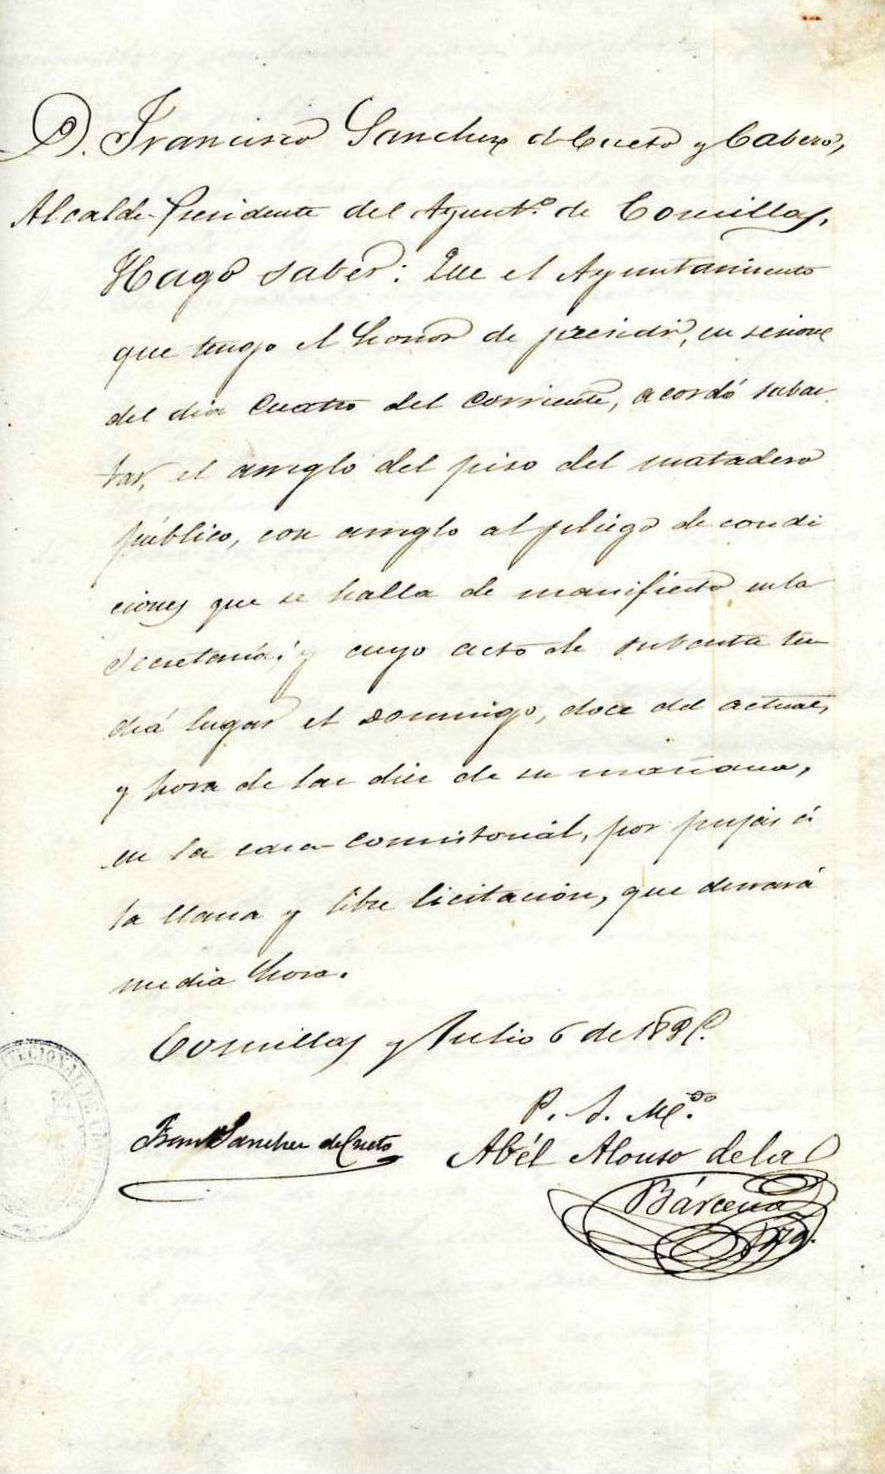 D. Francisco Sanchez de Cueto y Cabero,
Alcalde-Presidente del Ayuntº. de Comillas,
Hago saber: Que el Ayuntamiento
que tengo el honor de presidir, en sesion
del dia cuatro del corriente, acordó subas
tar, el arreglo del piso del matadero
público, con arreglo al pliego de condi
ciones que se halla de manifiesto en la
Secretaría; y cuyo acto de subasta ten
drá lugar el Domingo, doce del actual,
y hora de las diez de su mañana,
en la casa-consistorial, por pujas á
la llana y libre licitación, que durará
media hora.
Comillas y Julio 6 de
P. S. M.do
Franº Sanchez de Cueto
Abél Alonso de la
Bárcena